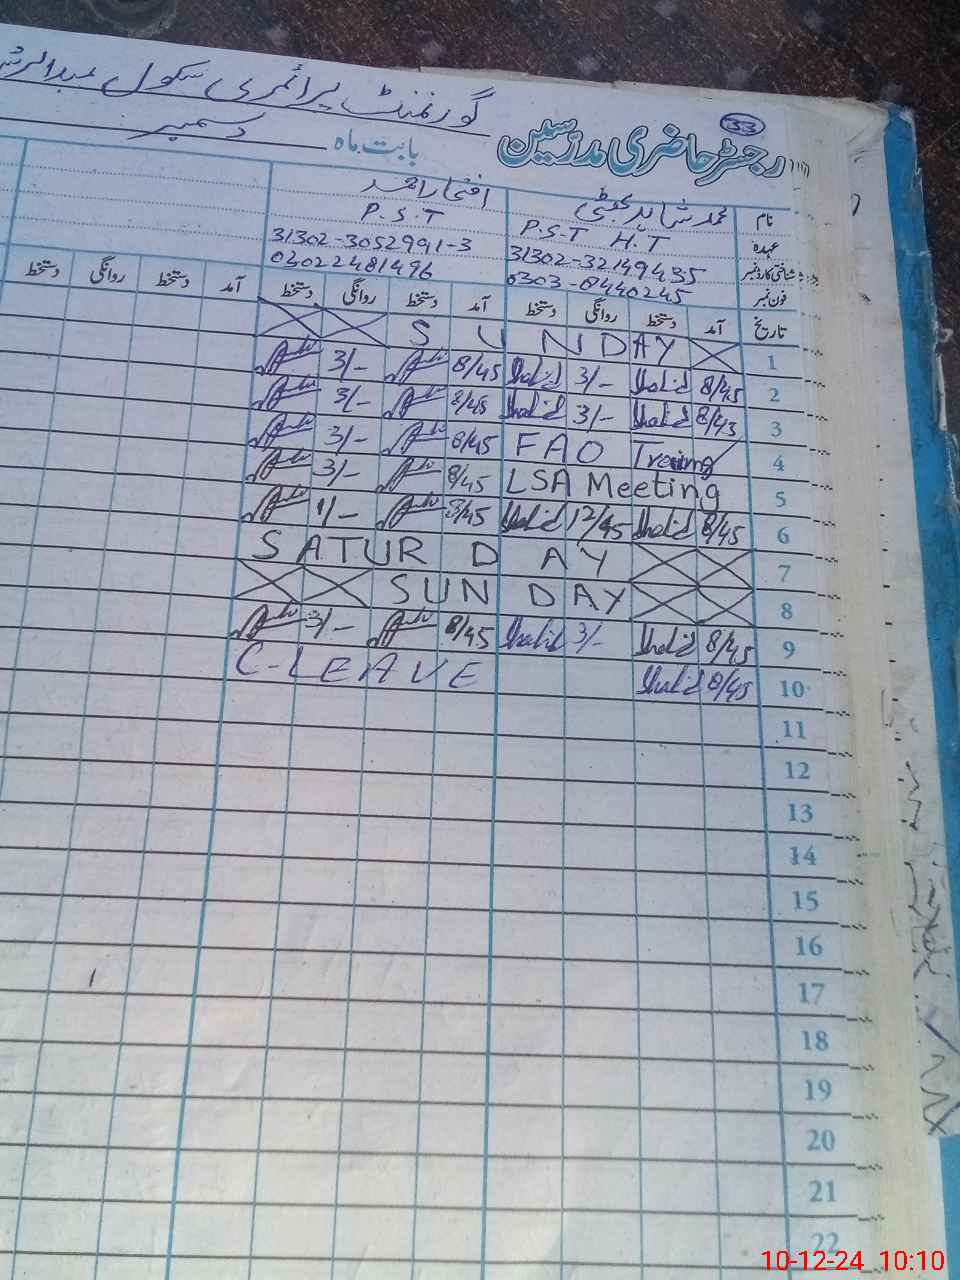 33
رجسٹر حاضری مدرسین گورنمنٹ پرائمری سکول
بابت ماہ دسمبر
نام محمد شاہد افتخار احمد
عہدہ P.S.T H.T P.S.T
شناختی کارڈ نمبر 31302-32149435 31302-3052991-3
فون نمبر 0303-8440245 03022481496
تاریخ آمد دستخط روانگی دستخط آمد دستخط روانگی دستخط آمد دستخط روانگی دستخط
1 SUNDAY
2 8/45 Shahid 3/- Shahid 8/45 3/-
3 8/45 Shahid 3/- Shahid 8/45 3/-
4 FAO Training 8/45 3/-
5 LSA Meeting 8/45 3/-
6 8/45 Shahid 12/45 Shahid 8/45 1/-
7 SATURDAY
8 SUNDAY
9 8/45 Shahid 3/- Shahid 8/45 3/-
10 8/45 Shahid C-LEAVE
11
12
13
14
15
16
17
18
19
20
21
22
10-12-24 10:10